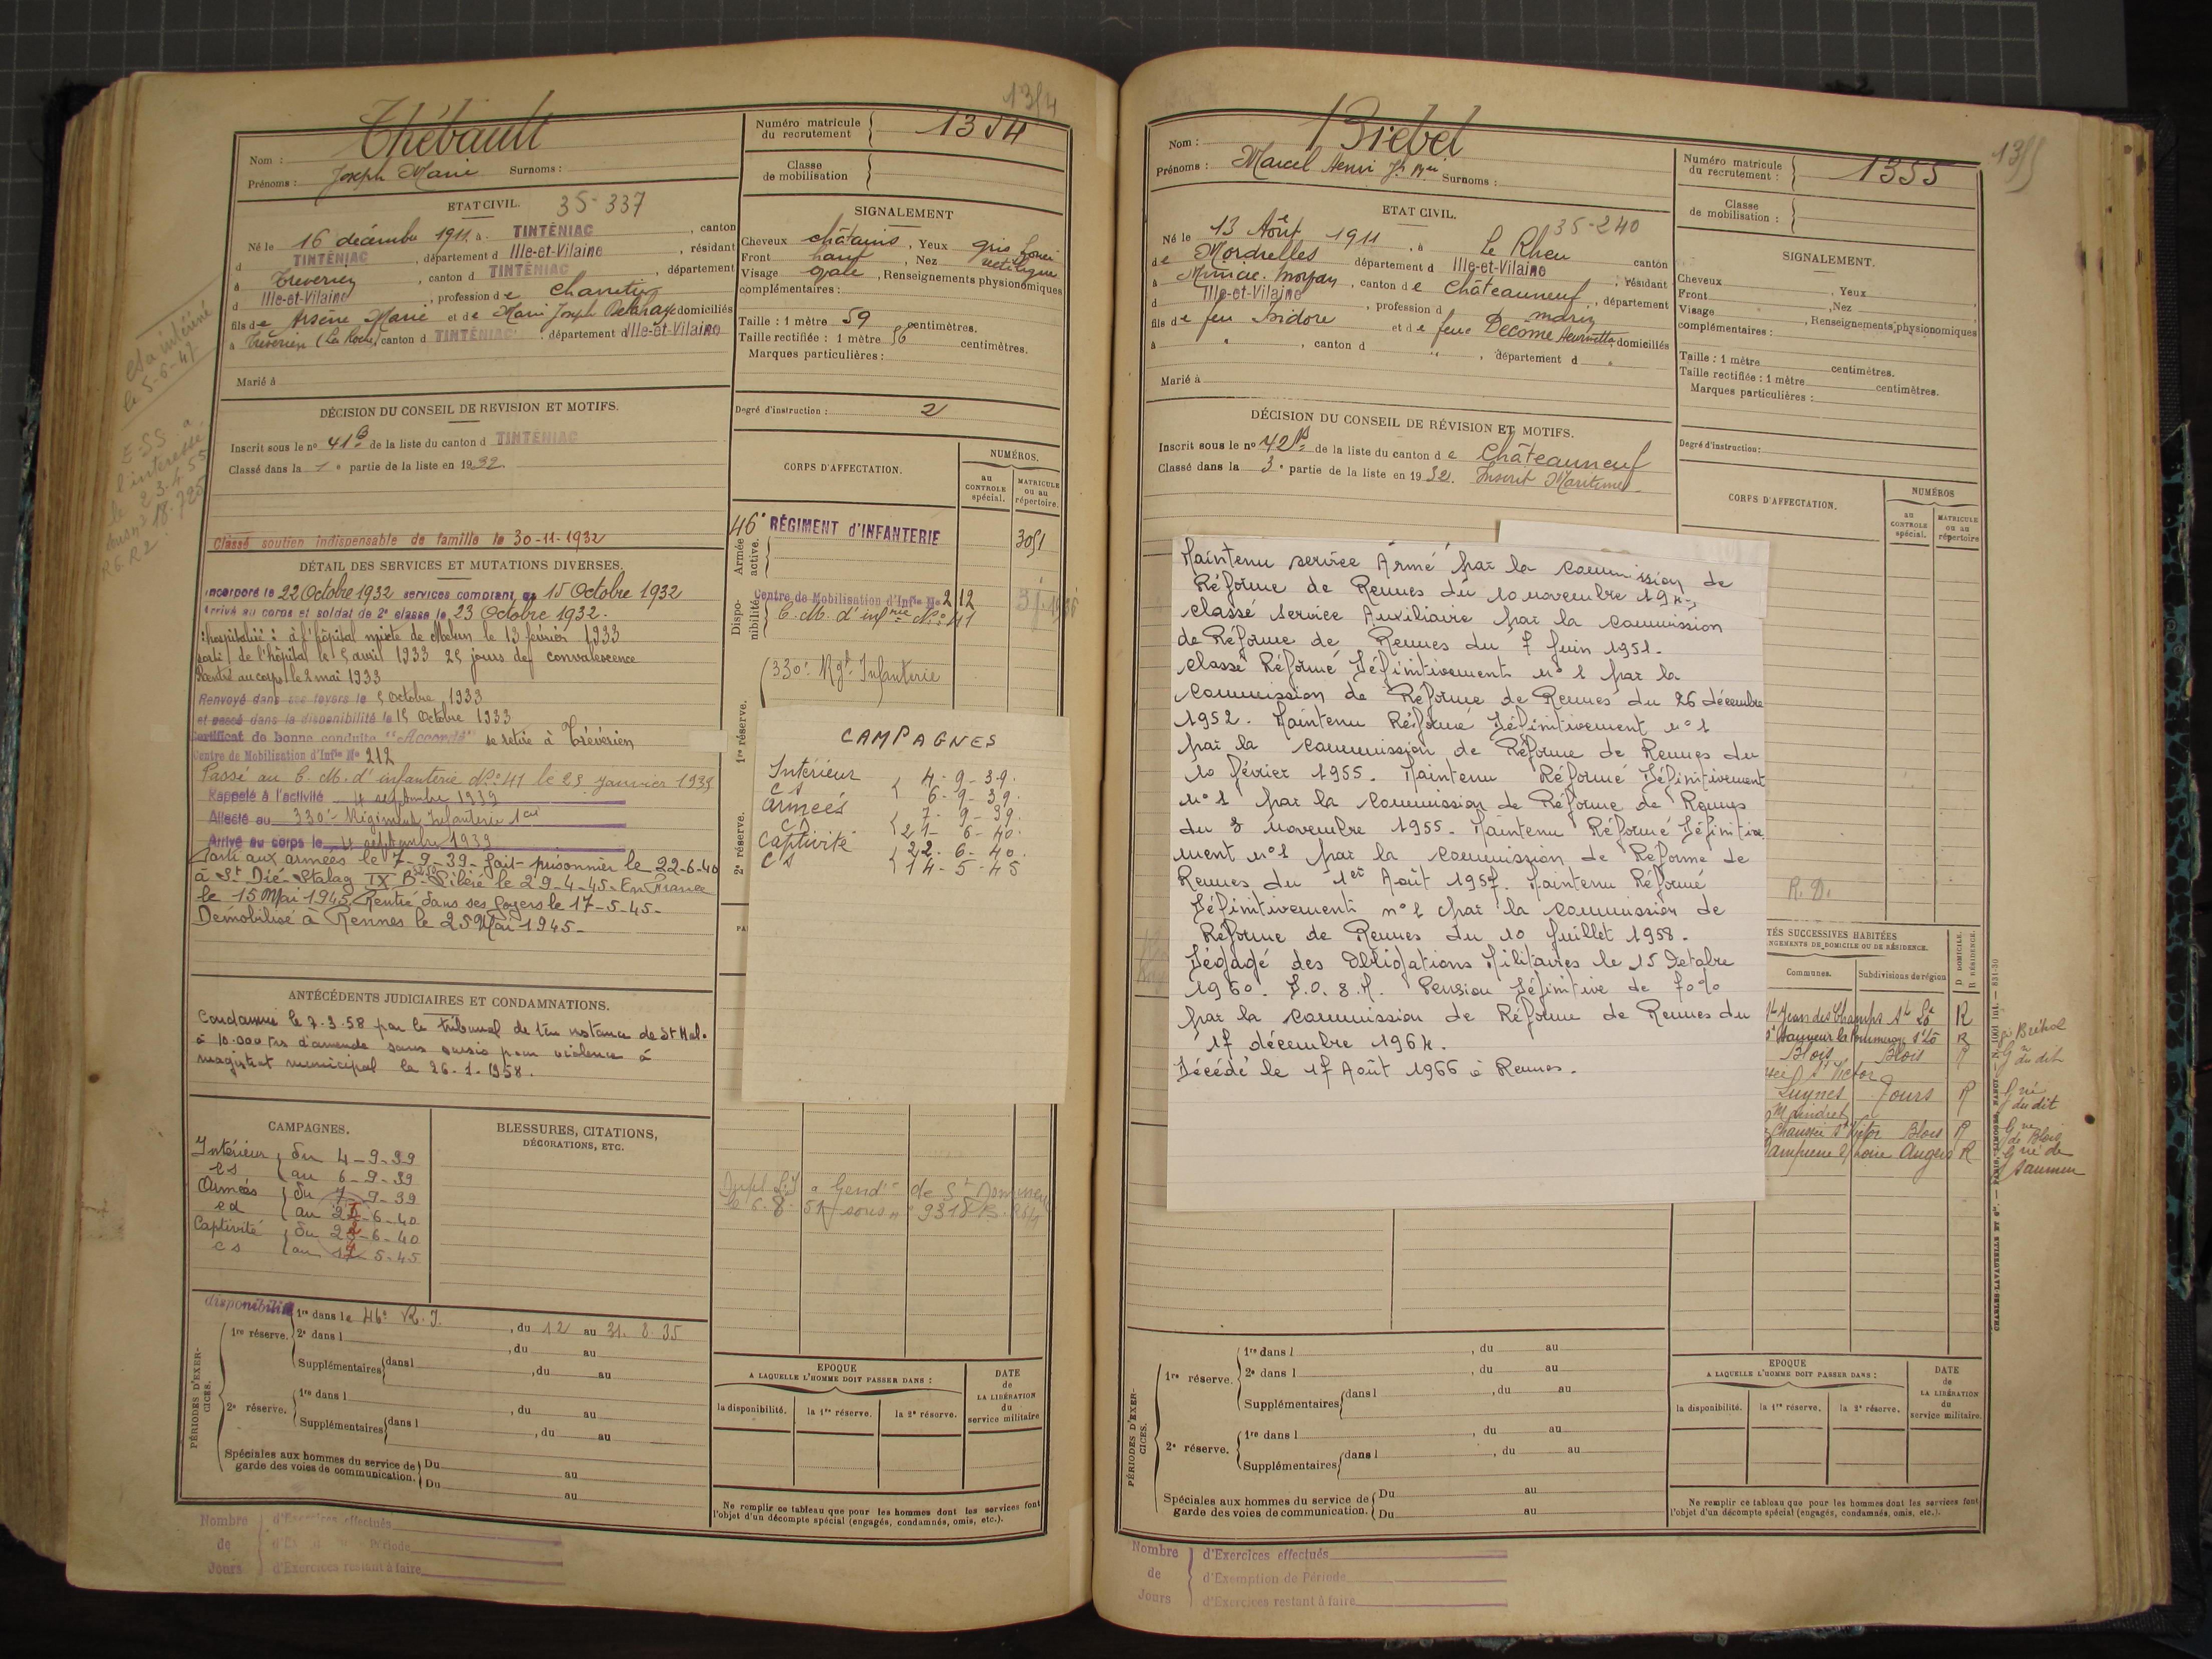 1354
Nom : Thébault
Prénoms : Joseph Marie Surnoms :
Numéro matricule du recrutement 1354
Classe de mobilisation
ETAT CIVIL. 35-337
Né le 16 décembre 1911, à TINTÉNIAC, canton
d TINTÉNIAC, département d Ille-et-Vilaine, résidant
à Treverien, canton d TINTÉNIAC, département
d Ille-et-Vilaine, profession de Charretier
fils de Arsène Marie et de Marie Joseph Delahaye domiciliés
à Treverien (La Roche) canton d TINTÉNIAC département d Ille-et-Vilaine
Marié à
SIGNALEMENT
Cheveux châtains, Yeux gris foncé
Front haut, Nez rectiligne
Visage ovale, Renseignements physionomiques
complémentaires :
Taille : 1 mètre 59 centimètres.
Taille rectifiée : 1 mètre 56 centimètres.
Marques particulières :
Degré d'instruction : 2
DÉCISION DU CONSEIL DE REVISION ET MOTIFS.
Inscrit sous le n° 41 B de la liste du canton d TINTÉNIAC
Classé dans la 1e partie de la liste en 1932.
Classé soutien indispensable de famille le 30-11-1932
le 5-6-47
ESS a
l'intéressé
le 23.4.55
18.725
DÉTAIL DES SERVICES ET MUTATIONS DIVERSES.
Incorporé le 22 Octobre 1932 services comptant du 15 Octobre 1932
Arrivé au corps et soldat de 2e classe le 23 Octobre 1932.
hospitalisé : à l'hôpital mixte de Melun le 13 février 1933
sorti de l'hôpital le 5 avril 1933 25 jours de convalescence
Rentré au corps le 2 mai 1933
Renvoyé dans ses foyers le 5 Octobre 1933
et passé dans la disponibilité le 15 Octobre 1933
Certificat de bonne conduite "Accordé" se retire à Tréverien
Centre de Mobilisation d'Infie No 212
Passé au C. M. d'infanterie No 41 le 23 Janvier 1935
Rappelé à l'activité 4 septembre 1939
Affecté au 330e Régiment Infanterie 1 cie
Arrivé au corps le 4 septembre 1939
Parti aux armées le 7-9-39- fait prisonnier le 22-6-40
à St Dié- Stalag IX B- Libéré le 29-4-45- En France
le 15 Mai 1945 Rentré dans ses foyers le 17-5-45-
Démobilisé à Rennes le 25 Mai 1945-
CORPS D'AFFECTATION.
NUMÉROS.
au CONTROLE spécial.
MATRICULE ou au répertoire.
Armée active.
46e RÉGIMENT d'INFANTERIE 3051
Disponibilité.
Centre de Mobilisation d'Infie No 212
C. M. d'infrie No 41
330e Rgt Infanterie
1re réserve.
2e réserve.
CAMPAGNES
Intérieur 4-9-39.
CS 6-9-39.
Armées 7-9-39.
CD 21-6-40.
Captivité 22-6-40.
CS 14-5-45
ANTÉCÉDENTS JUDICIAIRES ET CONDAMNATIONS.
Condamné le 7.3.58 par le tribunal de 1ère instance de St Malo
à 10.000 frs d'amende sans sursis pour violence à
magistrat municipal le 26.1.1958.
CAMPAGNES.
Intérieur du 4-9-39
CS au 6-9-39
Armées du 7-9-39
CD au 21-6-40
Captivité du 22-6-40
CS au 14-5-45
BLESSURES, CITATIONS,
DÉCORATIONS, ETC.
PÉRIODES D'EXERCICES.
disponibilité 1re dans le 46e R. I., du 12 au 31. 8. 35
1re réserve. 2e dans l , du au
Supplémentaires dans l , du au
2e réserve. 1re dans l , du au
Supplémentaires dans l , du au
Spéciales aux hommes du service de garde des voies de communication. Du au
Du au
EPOQUE
A LAQUELLE L'HOMME DOIT PASSER DANS :
la disponibilité. la 1re réserve. la 2e réserve.
DATE de LA LIBÉRATION du service militaire
Ne remplir ce tableau que pour les hommes dont les services font
l'objet d'un décompte spécial (engagés, condamnés, omis, etc.).
Nombre de Jours
d'Exercices effectués
Période
d'Exercices restant à faire
1355
Nom :
Prénoms : Marcel Henri Jh Mie Surnoms :
Numéro matricule du recrutement : 1355
Classe de mobilisation :
ETAT CIVIL. 35-240
Né le 13 Août 1911, à Le Rheu canton
de Mordelles département d Ille-et-Vilaine, résidant
à Miniac-Morvan, canton de Châteauneuf, département
d Ille-et-Vilaine, profession d marin
fils de feu Isidore et de feue Decome Henriette domiciliés
à " , canton d " , département d "
Marié à
SIGNALEMENT.
Cheveux , Yeux
Front , Nez
Visage , Renseignements physionomiques
complémentaires :
Taille : 1 mètre centimètres.
Taille rectifiée : 1 mètre centimètres.
Marques particulières :
Degré d'instruction :
DÉCISION DU CONSEIL DE RÉVISION ET MOTIFS.
Inscrit sous le n° 42 B de la liste du canton de Châteauneuf
Classé dans la 3e partie de la liste en 1932. Inscrit Maritime
CORPS D'AFFECTATION.
NUMÉROS
au CONTROLE spécial.
MATRICULE ou au répertoire
Maintenu service Armé par la commission de
Réforme de Rennes du 10 novembre
classé service Auxiliaire par la commission
de Réforme de Rennes du 7 Juin 1951.
classé Réformé Définitivement n° 1 par la
commission de Réforme de Rennes du 26 décembre
1952. Maintenu Réformé Définitivement n° 1
par la commission de Réforme de Rennes du
10 février 1955. Maintenu Réformé Définitivement
n° 1 par la commission de Réforme de Rennes
du 8 novembre 1955. Maintenu Réformé Définitive
ment n° 1 par la commission de Réforme de
Rennes du 1er Août 1957. Maintenu Réformé
Définitivement n° 1 par la commission de
Réforme de Rennes du 10 Juillet 1958.
Dégagé des Obligations Militaires le 15 Octobre
1960. D.O.S.M. Pension Définitive de 70%
par la commission de Réforme de Rennes du
17 décembre 1964.
Décédé le 17 Août 1966 à Rennes.
R. D.
TÉS SUCCESSIVES HABITÉES
NGEMENTS DE DOMICILE OU DE RÉSIDENCE.
Communes. Subdivisions de région
D DOMICILE. R RÉSIDENCE.
St Jean des Champs St Lô R
St Sauveur la Pommeraye St Lô R
Blois Blois R
St Victor
Luynes Tours R
Chaussée St Victor Blois R
Angers R
Gne de Blois
Gne de Saumur
CHARLES-LAVAUZELLE ET Cie. — PARIS, LIMOGES, NANCY.
PÉRIODES D'EXERCICES.
1re réserve. 1re dans l , du au
2e dans l , du au
Supplémentaires dans l , du au
2e réserve. 1re dans l , du au
Supplémentaires dans l , du au
Spéciales aux hommes du service de garde des voies de communication. Du au
Du au
EPOQUE
A LAQUELLE L'HOMME DOIT PASSER DANS :
la disponibilité. la 1re réserve. la 2e réserve.
DATE de LA LIBÉRATION du service militaire.
Ne remplir ce tableau que pour les hommes dont les services font
l'objet d'un décompte spécial (engagés, condamnés, omis, etc.).
Nombre de Jours
d'Exercices effectués
d'Exemption de Période
d'Exercices restant à faire